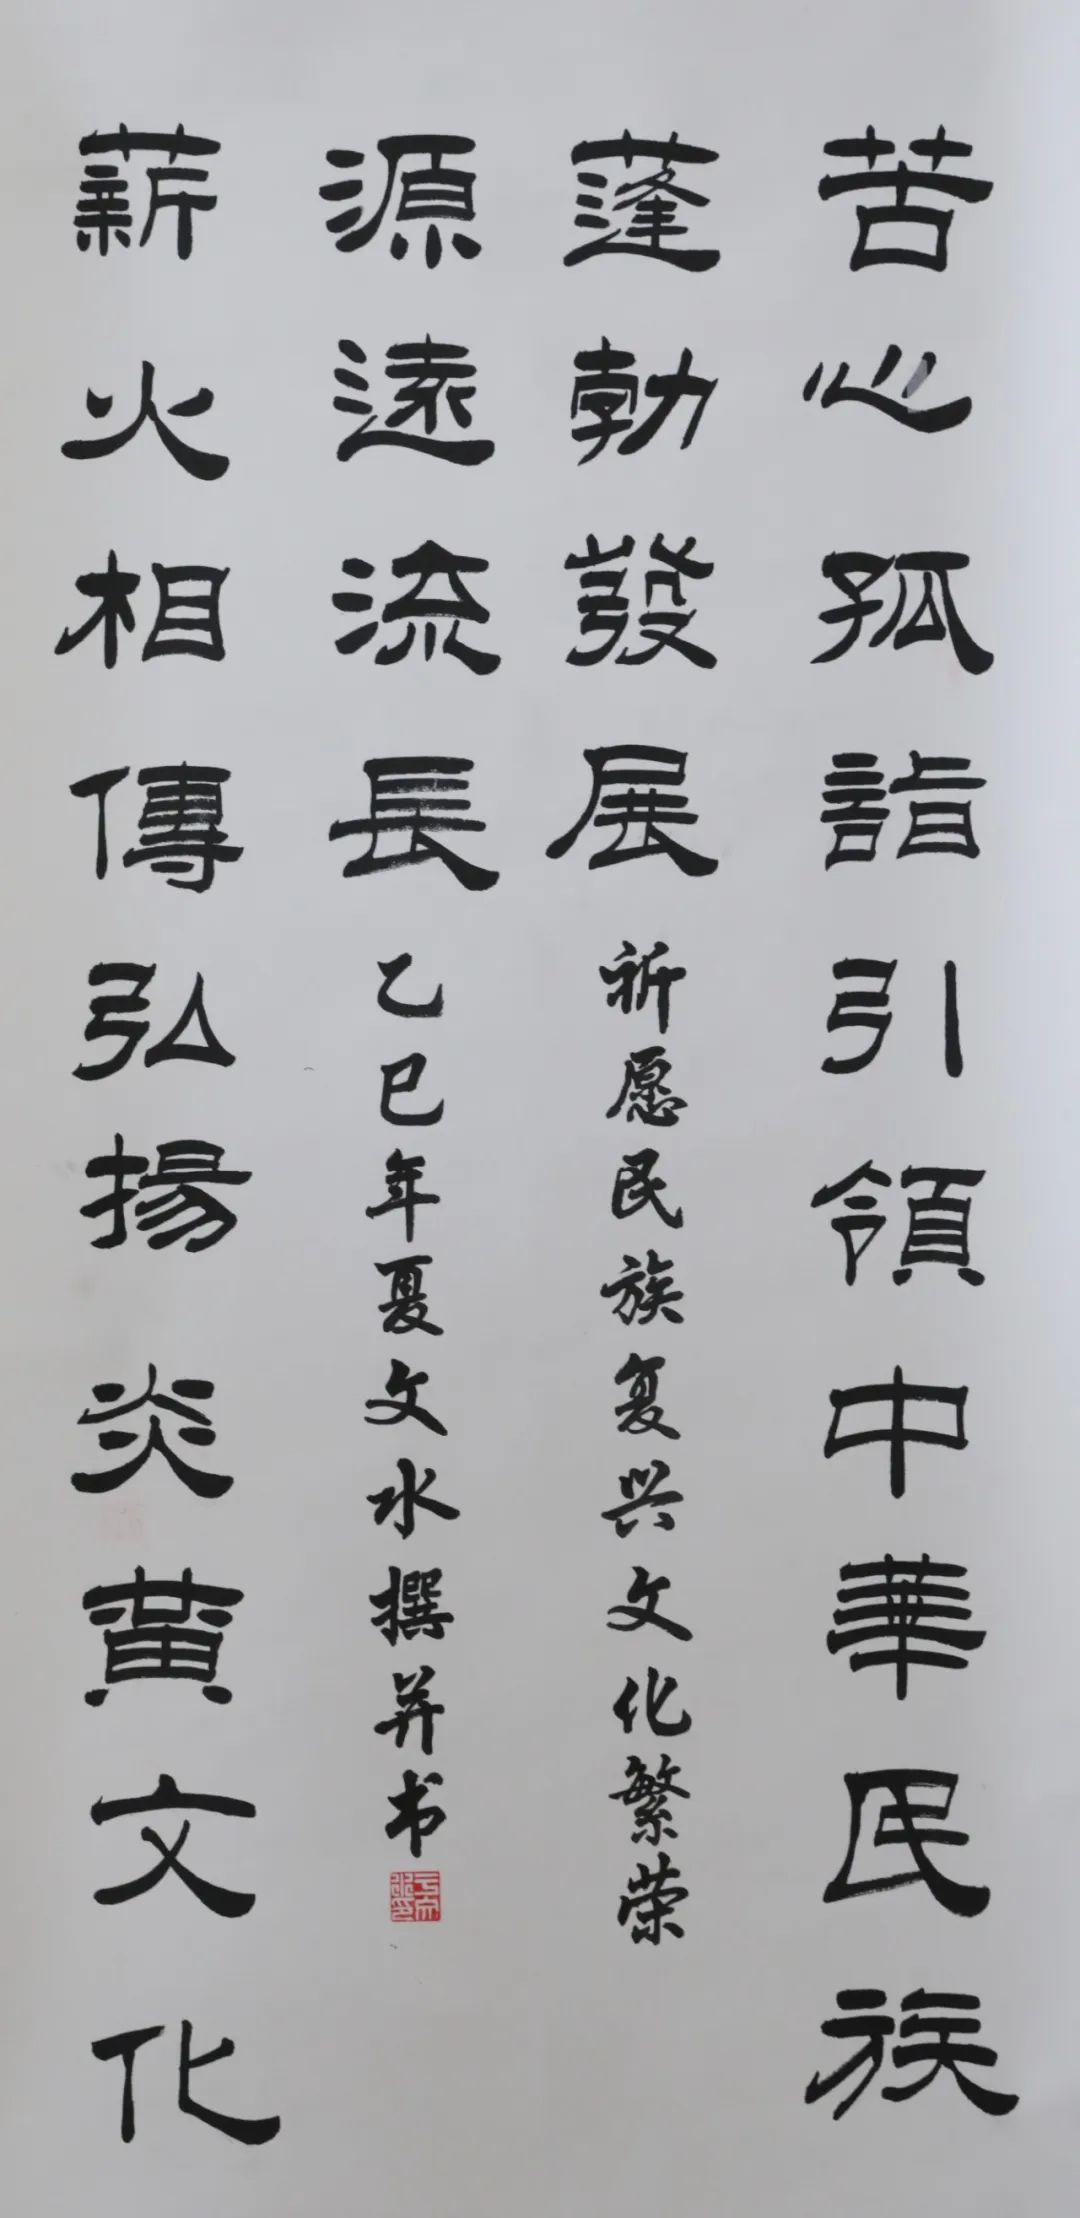 苦心孤詣引領中華民族
蓬勃發展
薪火相傳弘揚炎黄文化
源遠流長
祈愿民族复兴文化繁荣
乙巳年夏文水撰并书